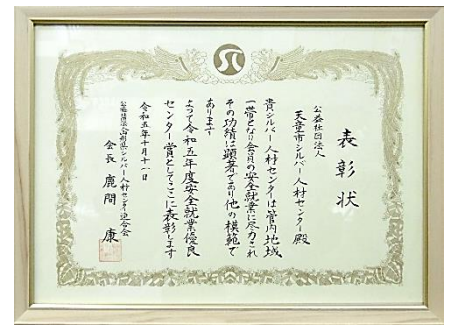 表彰状
公益社団法人
天童市シルバー人材センター殿
貴シルバー人材センターは管内地域
一帯となり会員の安全就業に尽力され
その功績は顕著であり他の模範で
あります
よって令和五年度安全就業優良
センター賞としてここに表彰します
令和五年十月十一日
公益社団法人山形県シルバー人材センター連合会
会長 鹿間 康